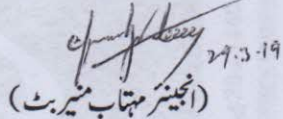 29.3.19
(انجینئر مہتاب منیر بٹ)